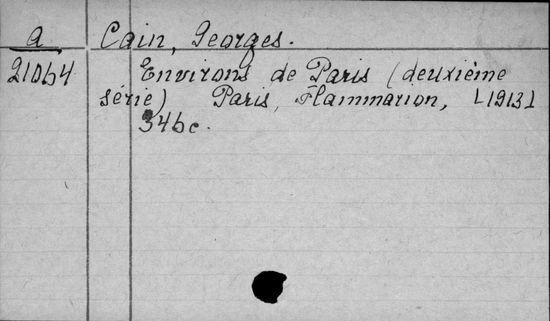 a Cain, Georges.
21064 Environs de Paris (deuxième
série) Paris, Flammarion, [1913]
346c.